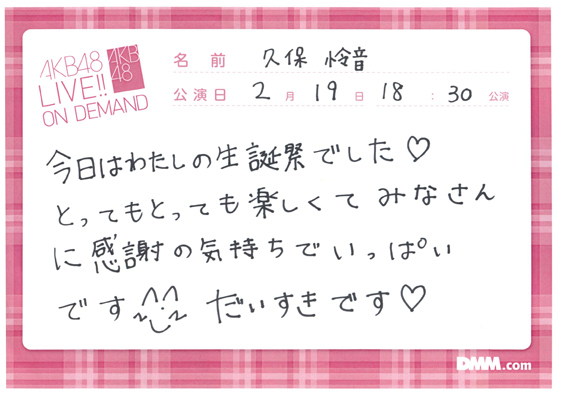 AKB48
LIVE!!
ON DEMAND
AKB
48
名前 久保怜音
公演日 2月19日 18:30公演
今日はわたしの生誕祭でした♡
とってもとっても楽しくて みなさん
に感謝の気持ちでいっぱい
です だいすきです♡
DMM.com